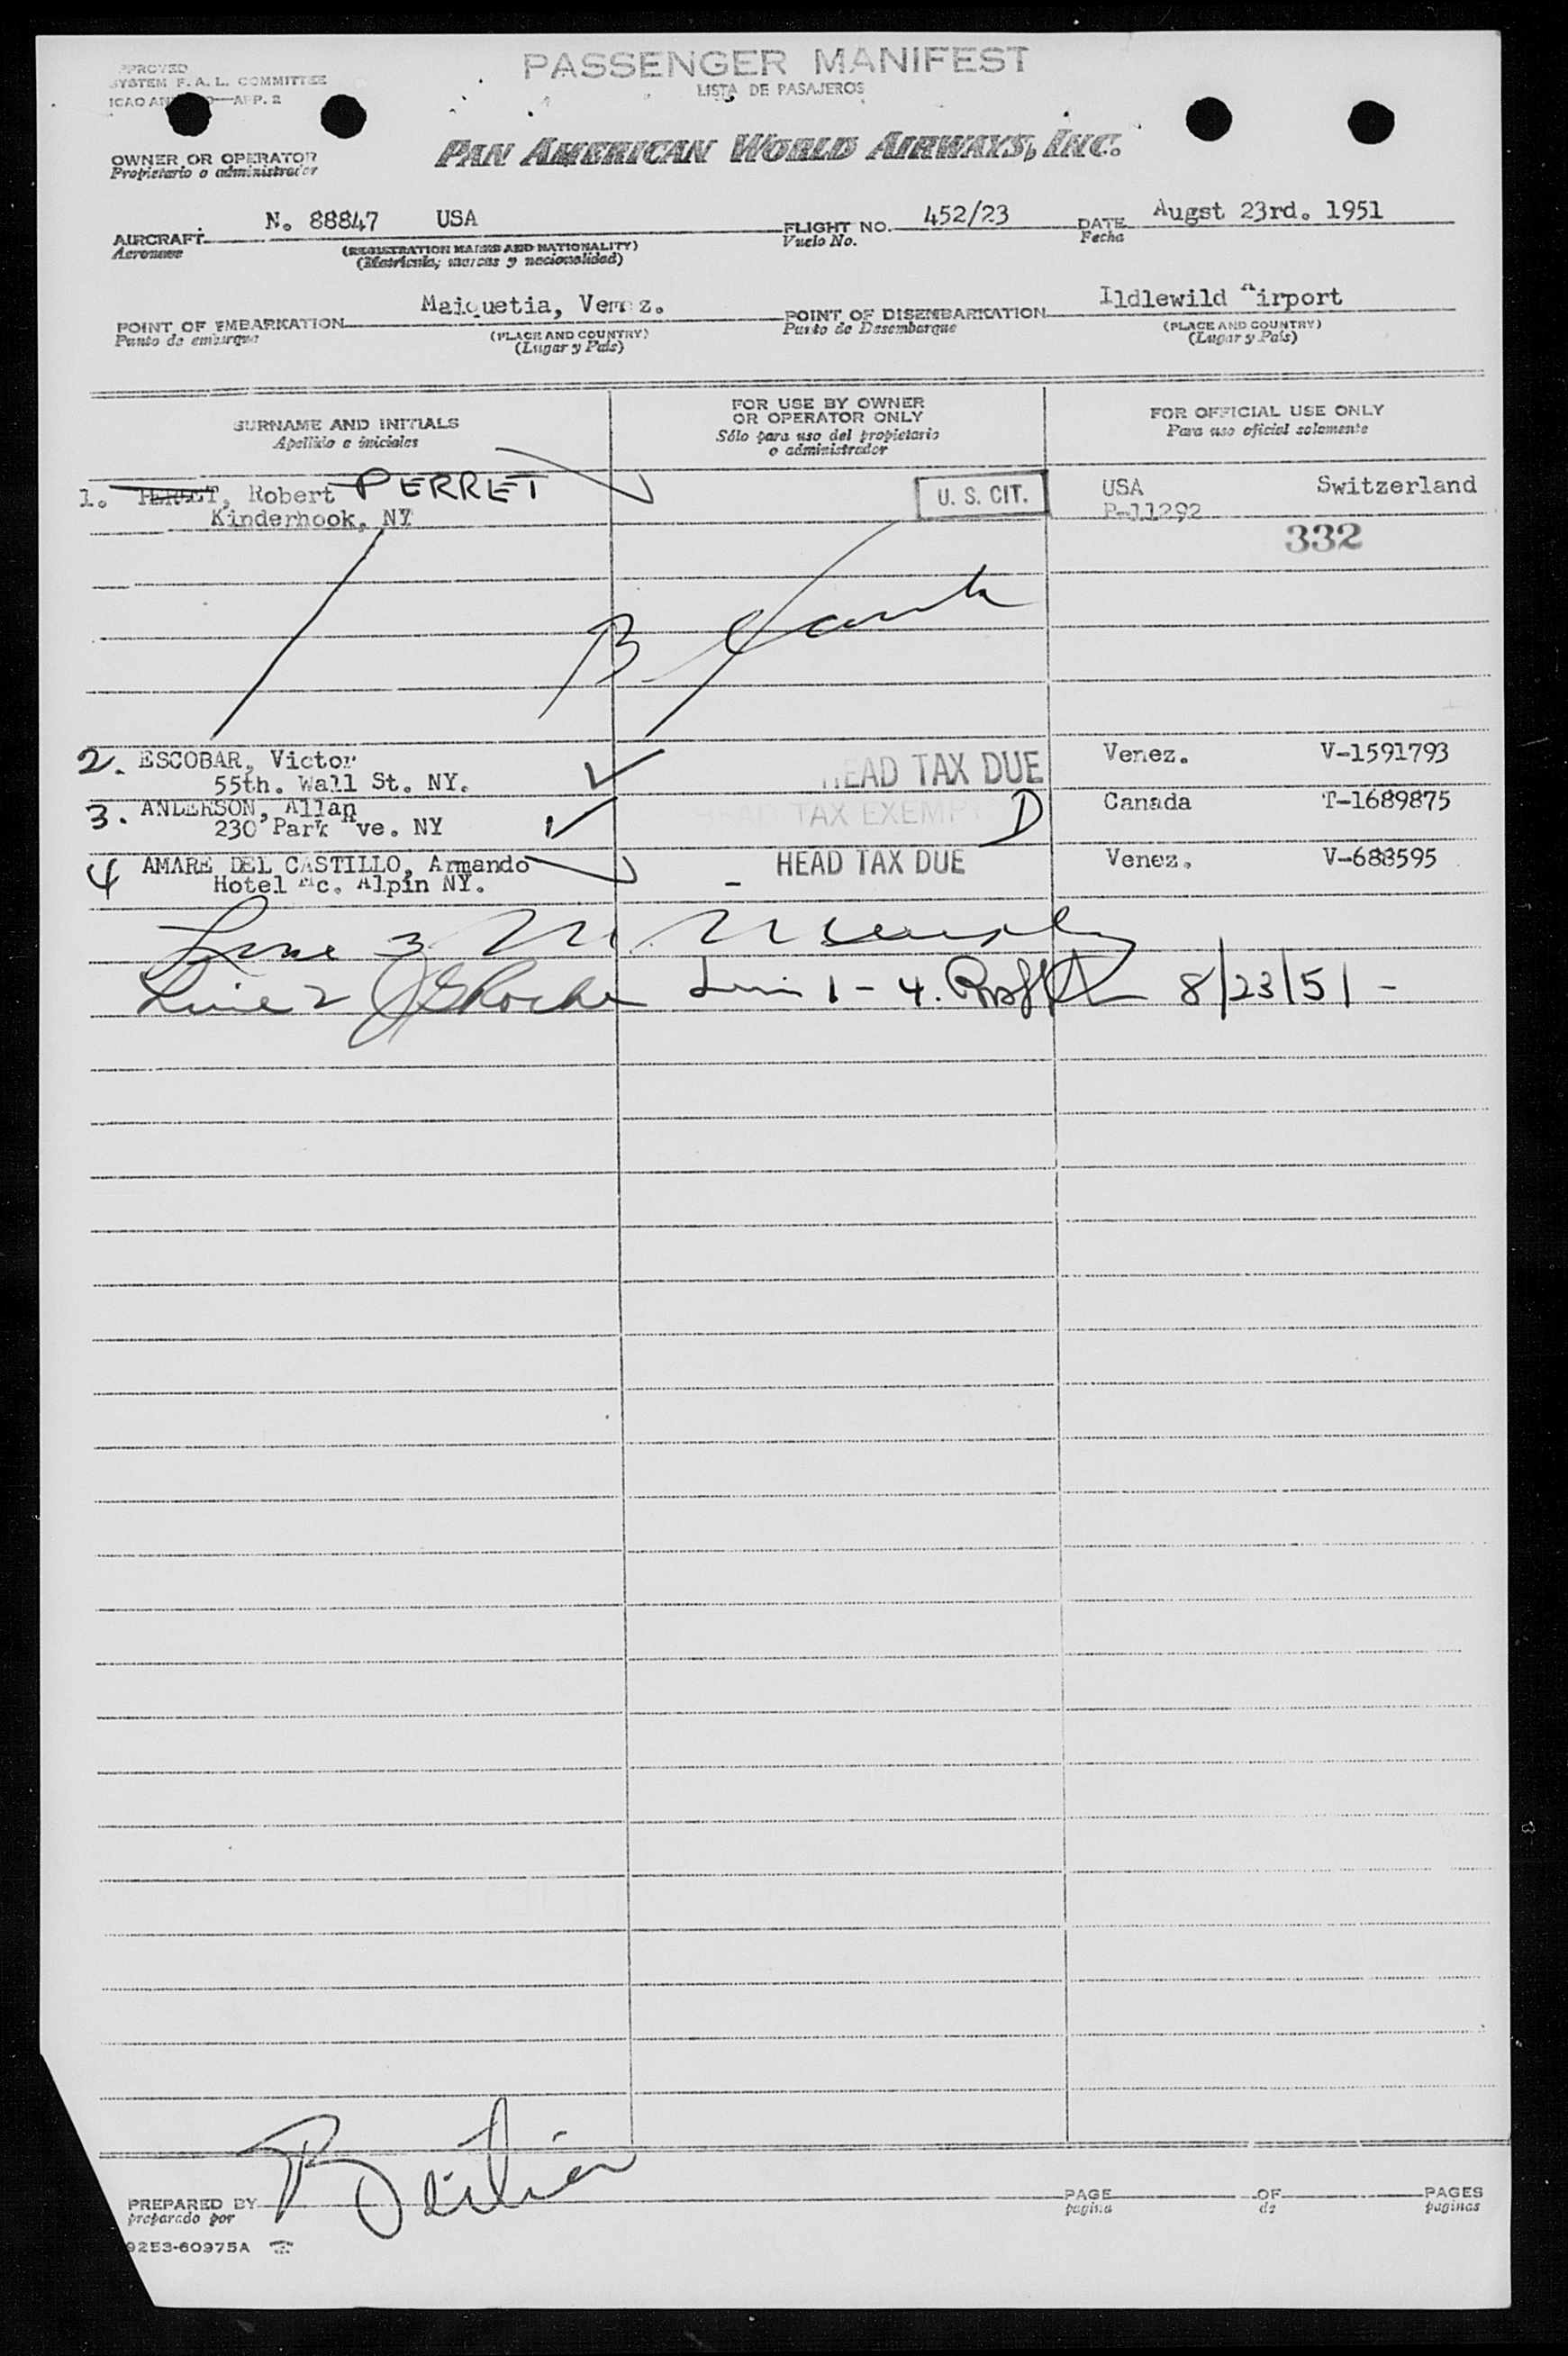 PASSENGER MANIFEST
LISTA DE PASAJEROS
SYSTEM F. A. L. COMMITTEE
APP. 2
OWNER OR OPERATOR
Propietario o administrador
PAN AMERICAN WORLD AIRWAYS, INC.
AIRCRAFT N. 88847 USA FLIGHT NO. 452/23 DATE Augst 23rd. 1951
Aeronave (REGISTRATION MARKS AND NATIONALITY) Vuelo No. Fecha
(Matrícula, marcas y nacionalidad)
POINT OF EMBARKATION Maiquetia, POINT OF DISEMBARKATION Ildlewild Airport
Punto de embarque (PLACE AND COUNTRY) Punto de Desembarque (PLACE AND COUNTRY)
(Lugar y País) (Lugar y País)
SURNAME AND INITIALS FOR USE BY OWNER OR OPERATOR ONLY FOR OFFICIAL USE ONLY
Apellido e iniciales Sólo para uso del propietario o administrador Para uso oficial solamente
1. Robert PERRET U. S. CIT. USA Switzerland
Kinderhook, NY P-11292
332
2. ESCOBAR, Victor HEAD TAX DUE Venez. V-1591793
55th. Wall St. NY.
3. ANDERSON, Allan TAX EXEMP D Canada T-1689875
230 Park Ave. NY
4 AMARE DEL CASTILLO, Armando HEAD TAX DUE Venez. V-688595
Hotel Mc. Alpin NY.
Line 3
Line 2 1-4. 8/23/51-
PREPARED BY PAGE OF PAGES
preparado por pagina de paginas
9253-60975A